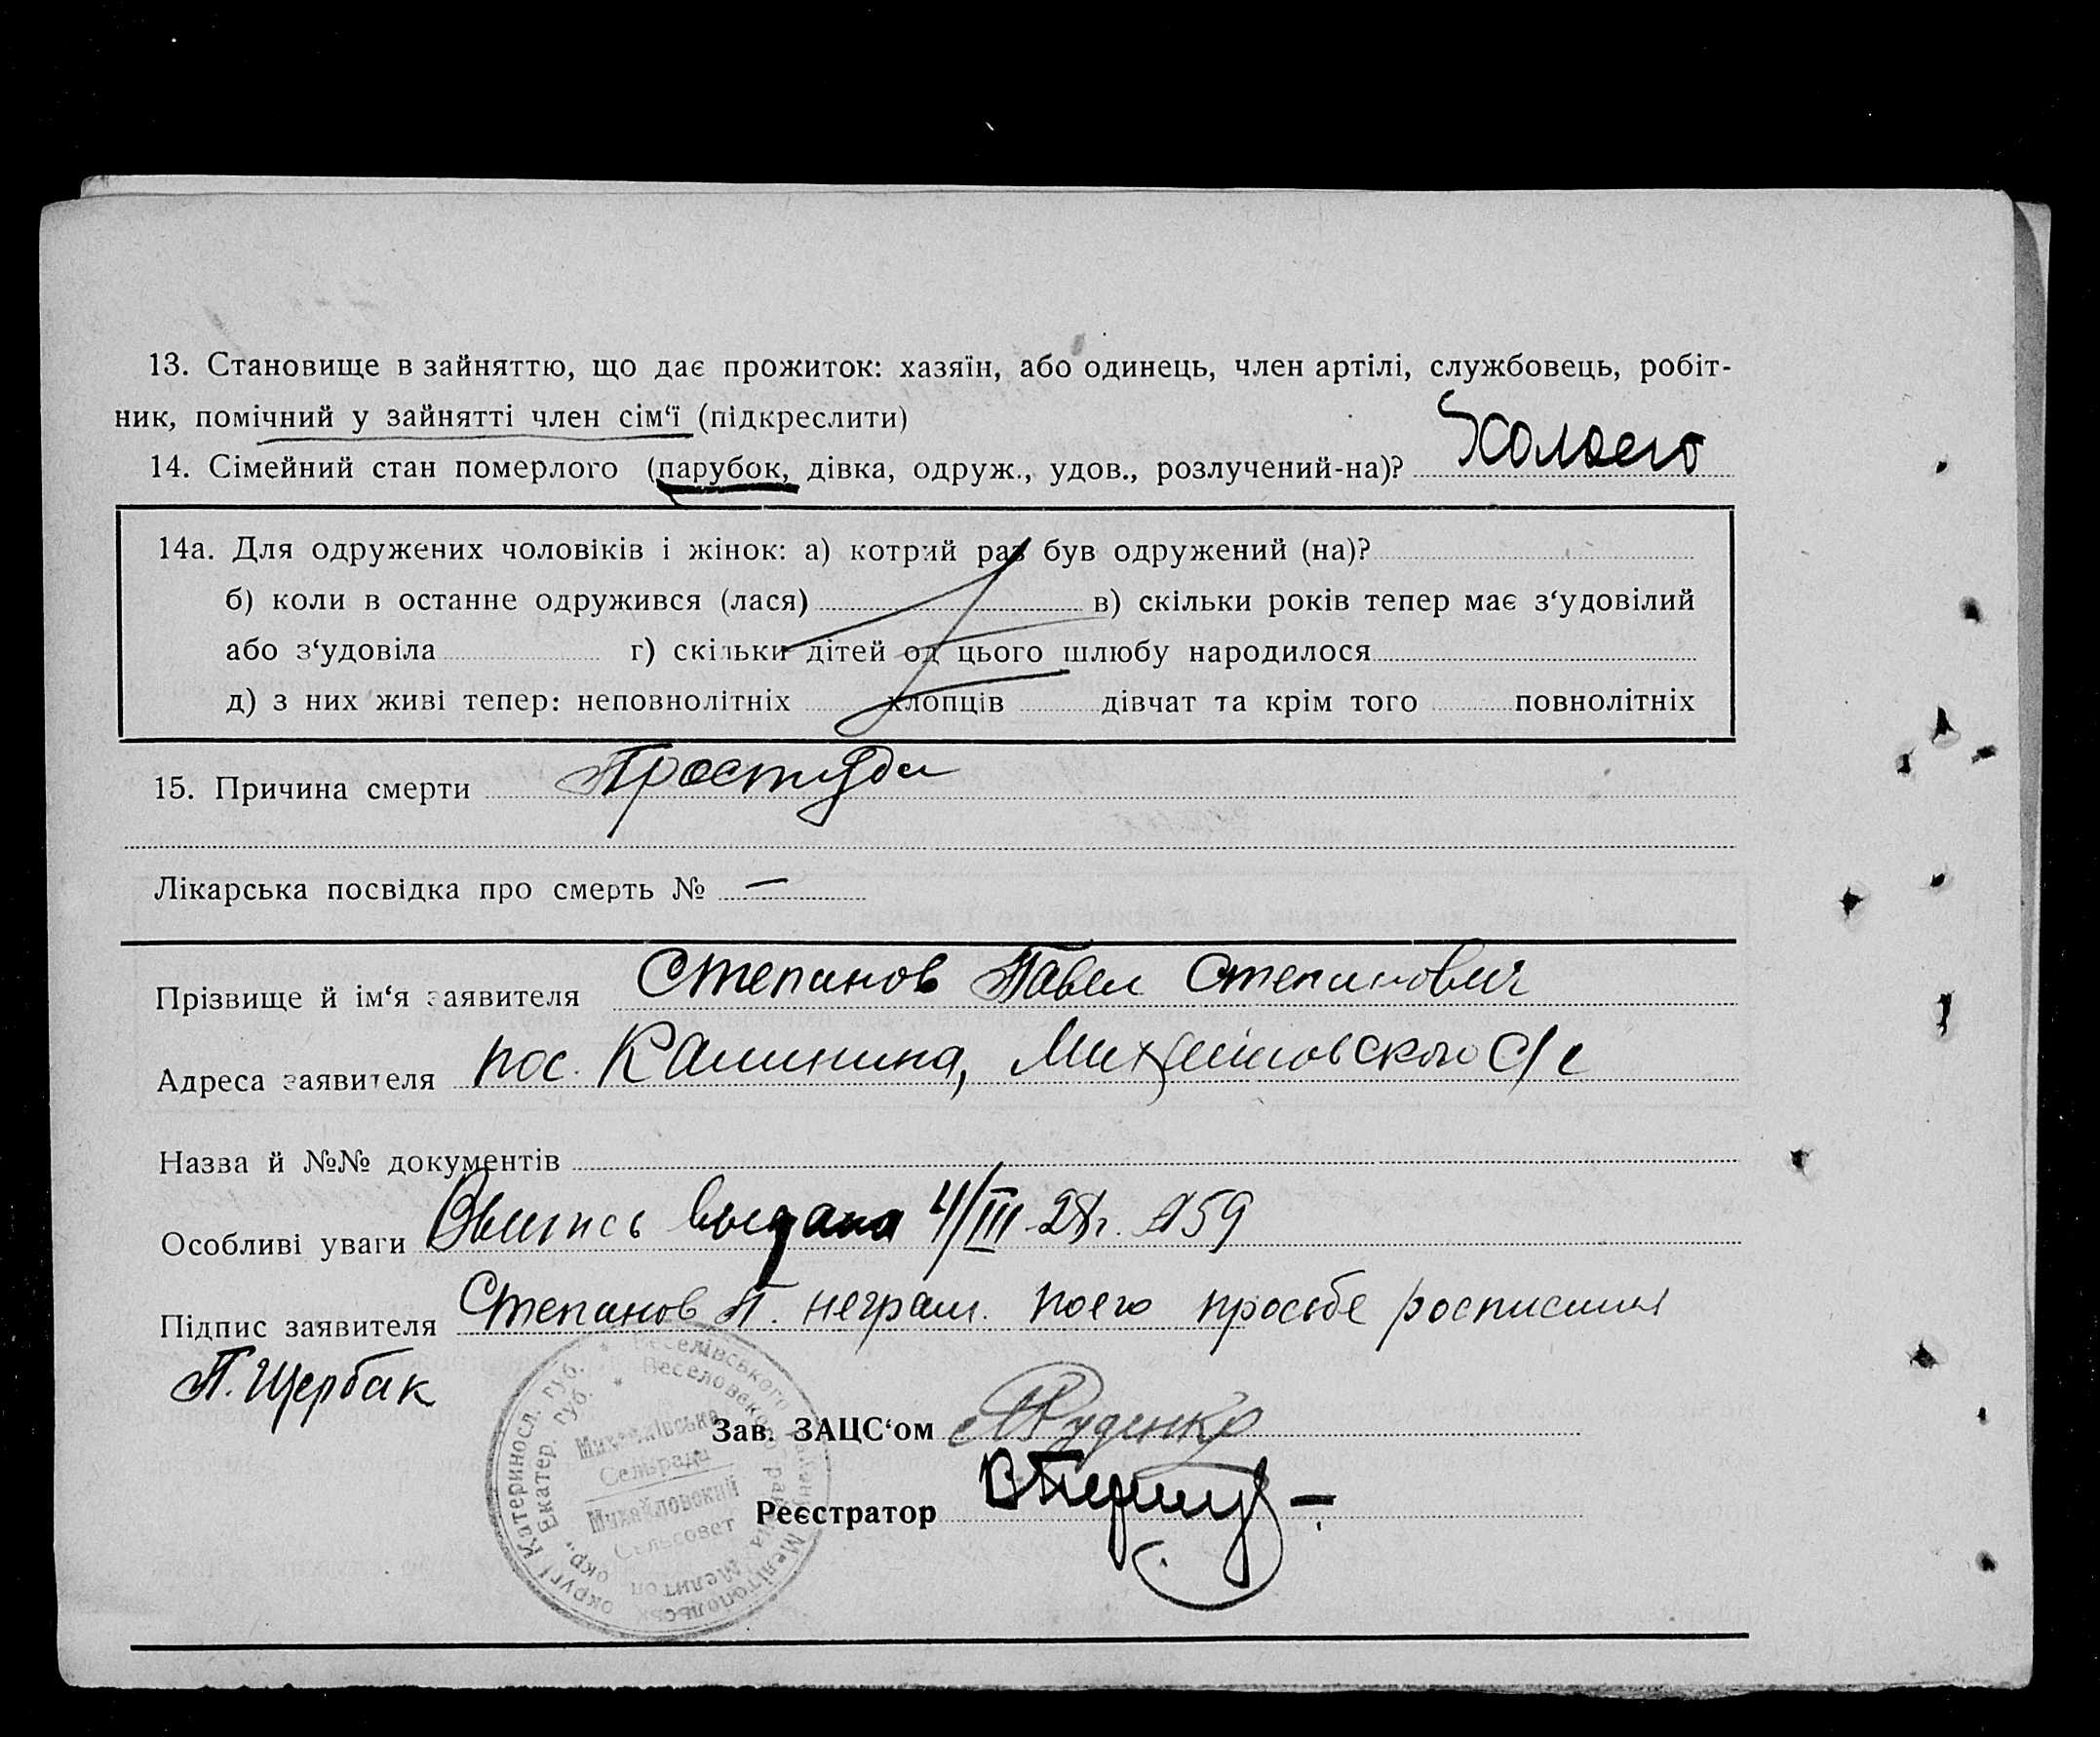 13. Становище в зайняттю, що дає прожиток: хазяїн, або одинець, член артілі, службовець, робіт-
ник, помічний у зайнятті член сім‘ї (підкреслити)
14. Сімейний стан померлого (парубок, дівка, одруж., удов., розлучений-на)?
14а. Для одружених чоловіків і жінок: а) котрий раз був одружений (на)?
б) коли в останне одружився (лася) в) скільки років тепер має з‘удовілий
або з‘удовіла г) скільки дітей од цього шлюбу народилося
д) з них живі тепер: неповнолітніх хлопців дівчат та крім того повнолітніх
15. Причина смерти Простуда
Лікарська посвідка про смерть № —
Прізвище й ім‘я заявителя Степанов Павел Степанович
Адреса заявителя пос. Калинина, Михайловского С/с
Назва й №№ документів
Особливі уваги выдана 4/III-28г. №59
Підпис заявителя Степанов П. неграм. поего просьбе росписался
П. Щербак
Зав. ЗАЦС‘ом Руденко
Реєстратор
Катериносл. губ. * Веселівського району Мелітопольськ округі
Екатер. губ. * Веселовского района Мелитоп окр.,
Михайлівська
Сельрада
Михайловский
Сельсовет